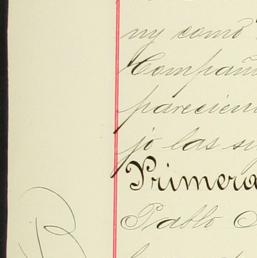 ny como
Compañ
parecien
jo las s
Primera
Pablo